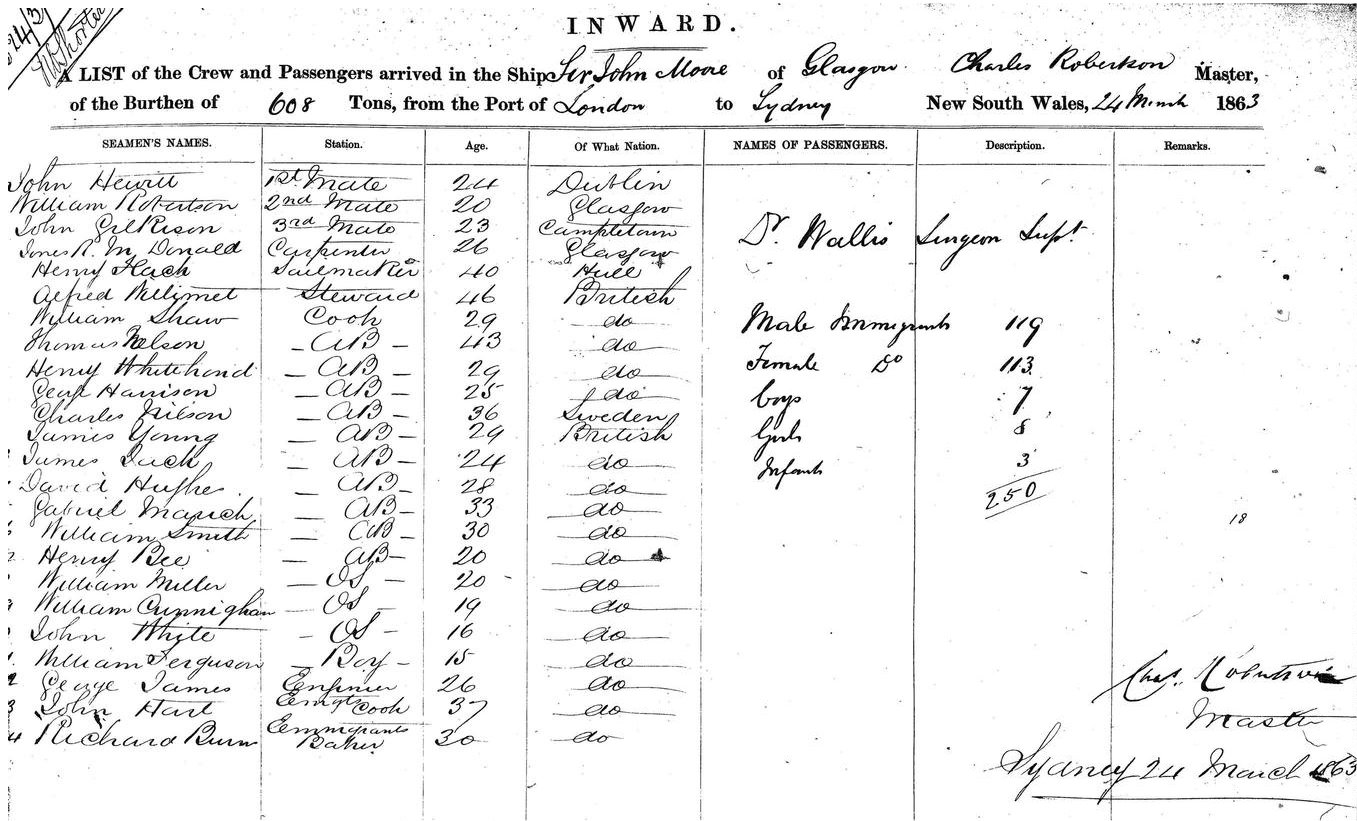 24/3
W Shorter
INWARD.
A LIST of the Crew and Passengers arrived in the Ship Sir John Moore of Glasgow Charles Robertson Master,
of the Burthen of 608 Tons, from the Port of London to Sydney New South Wales, 24 March 1863
SEAMEN'S NAMES. Station. Age. Of What Nation. NAMES OF PASSENGERS. Description. Remarks.
John Hewitt 1st Mate 24 Dublin
William Robertson 2nd Mate 20 Glasgow
John Gilkison 3rd Mate 23 Campletown
R. Mc Donald Carpenter 26 Glasgow
Dr. Wallis Surgeon Supt.
Henry Flack Sailmaker 40 Hull
Alfred Willimet Steward 46 British
William Shaw Cook 29 do
Male Immigrants 119
Thomas Nelson - AB - 43 do
Henry Whitehand - AB - 29 do
Female Do 113
George Harrison - AB - 25 do
boys 7
Charles Nilson - AB - 36 Sweden
James Young - AB - 29 British
Girls 8
James Jack - AB - 24 do
Infants 3
David Hughes - AB - 28 do
250
Gabriel - AB - 33 do
18
William Smith - AB - 30 do
Henry Bee - AB - 20 do
William Miller - OS - 20 do
William Cunnigham - OS - 19 do
John White - OS - 16 do
William Ferguson - Boy - 15 do
George James Enginier 26 do
Chas. Robertson
John Hart Emigts Cook 37 do
Master
Richard Burn Emmigrants Baker 30 do
Sydney 24 March 1863